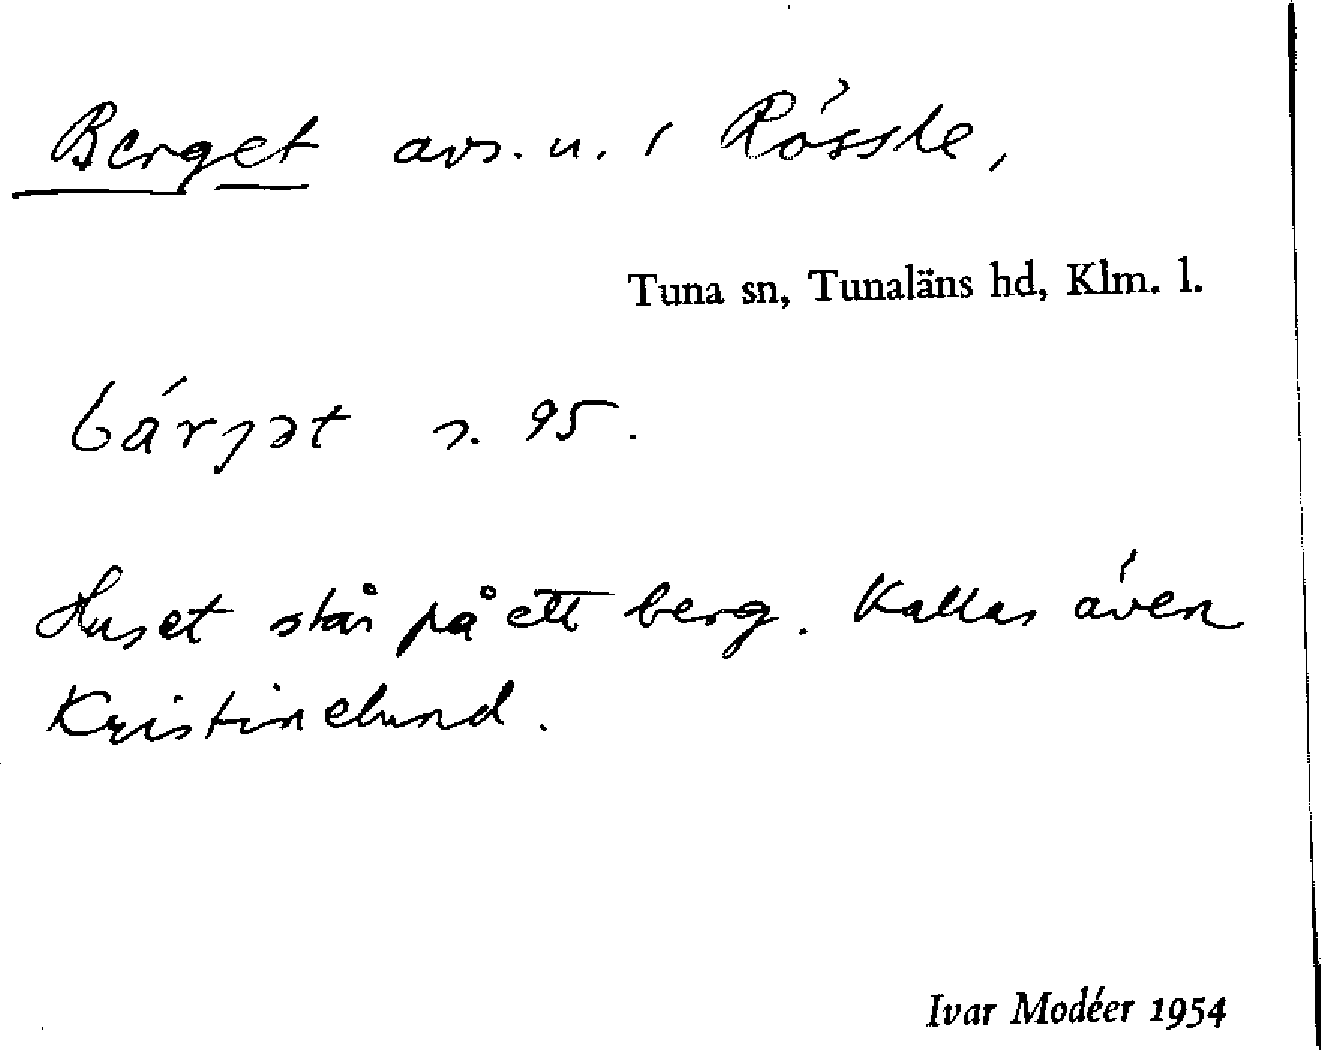 Berget avs. u. i Rössle,
Tuna sn, Tunaläns hd, Klm. l.
bárjət s. 95.
Huset står på ett berg. Kallas även
Kristinelund.
Ivar Modéer 1954